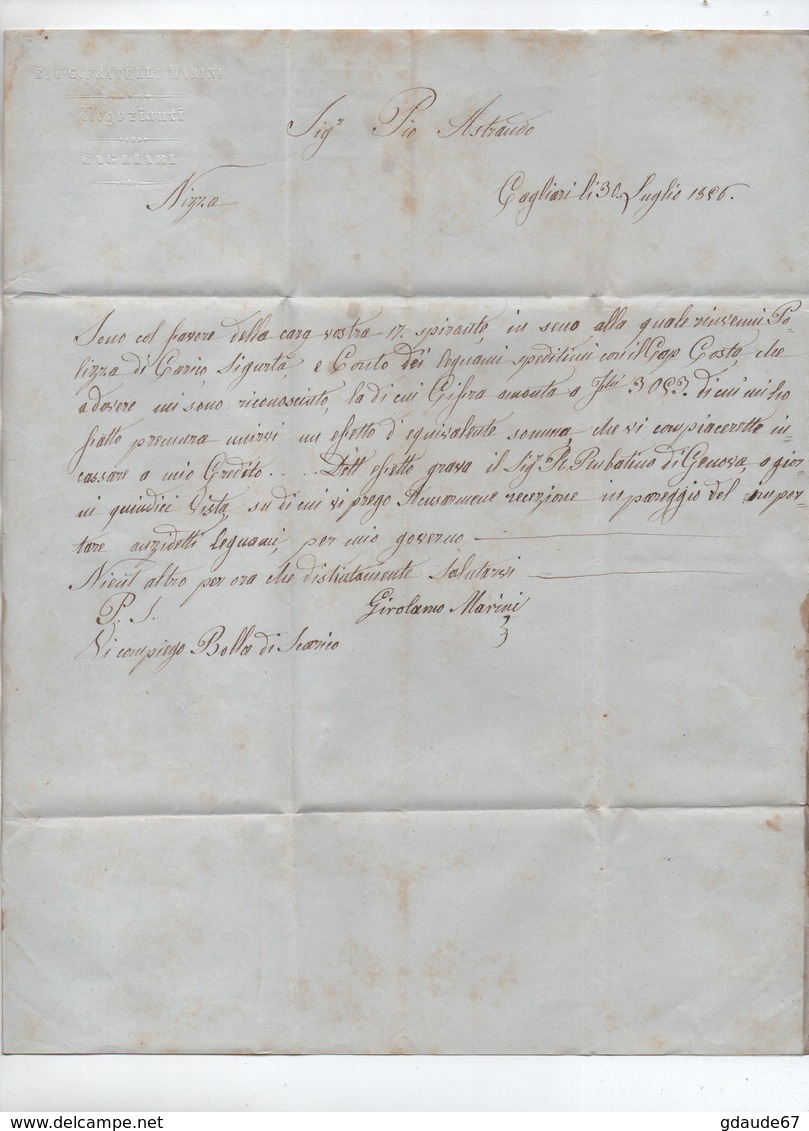 E. & G. FRATELLI MARINI
Negozianti
CAGLIARI
Sig.r Pio Astraudo
Nizza
Cagliari li 30 Luglio 1856.
Sono col favore della cara vostra 17. spirante, in seno alla quale rinvenni Po-
lizza di Carico, Sigurtà, e Conto dei legnami speditimi con il Cap Costa, che
a dovere mi sono riconosciuto, la di cui Cifra amonta a 3053. di cui mi ho
fatto premura unirvi un effetto d'equivalente somma, che vi compiacerette in-
cassare a mio Credito.... Dett effetto grava il Sig.r R. Rubatino di Genova, a gior-
ni quindici Vista, su di cui vi prego Acusarmene recezione in pareggio del impor-
tare anzidetti legnami, per mio governo
Nient altro per ora che distintamente Salutarvi
P. S. Girolamo Marini
Vi compiego Bolla di Scarico
gdaude67